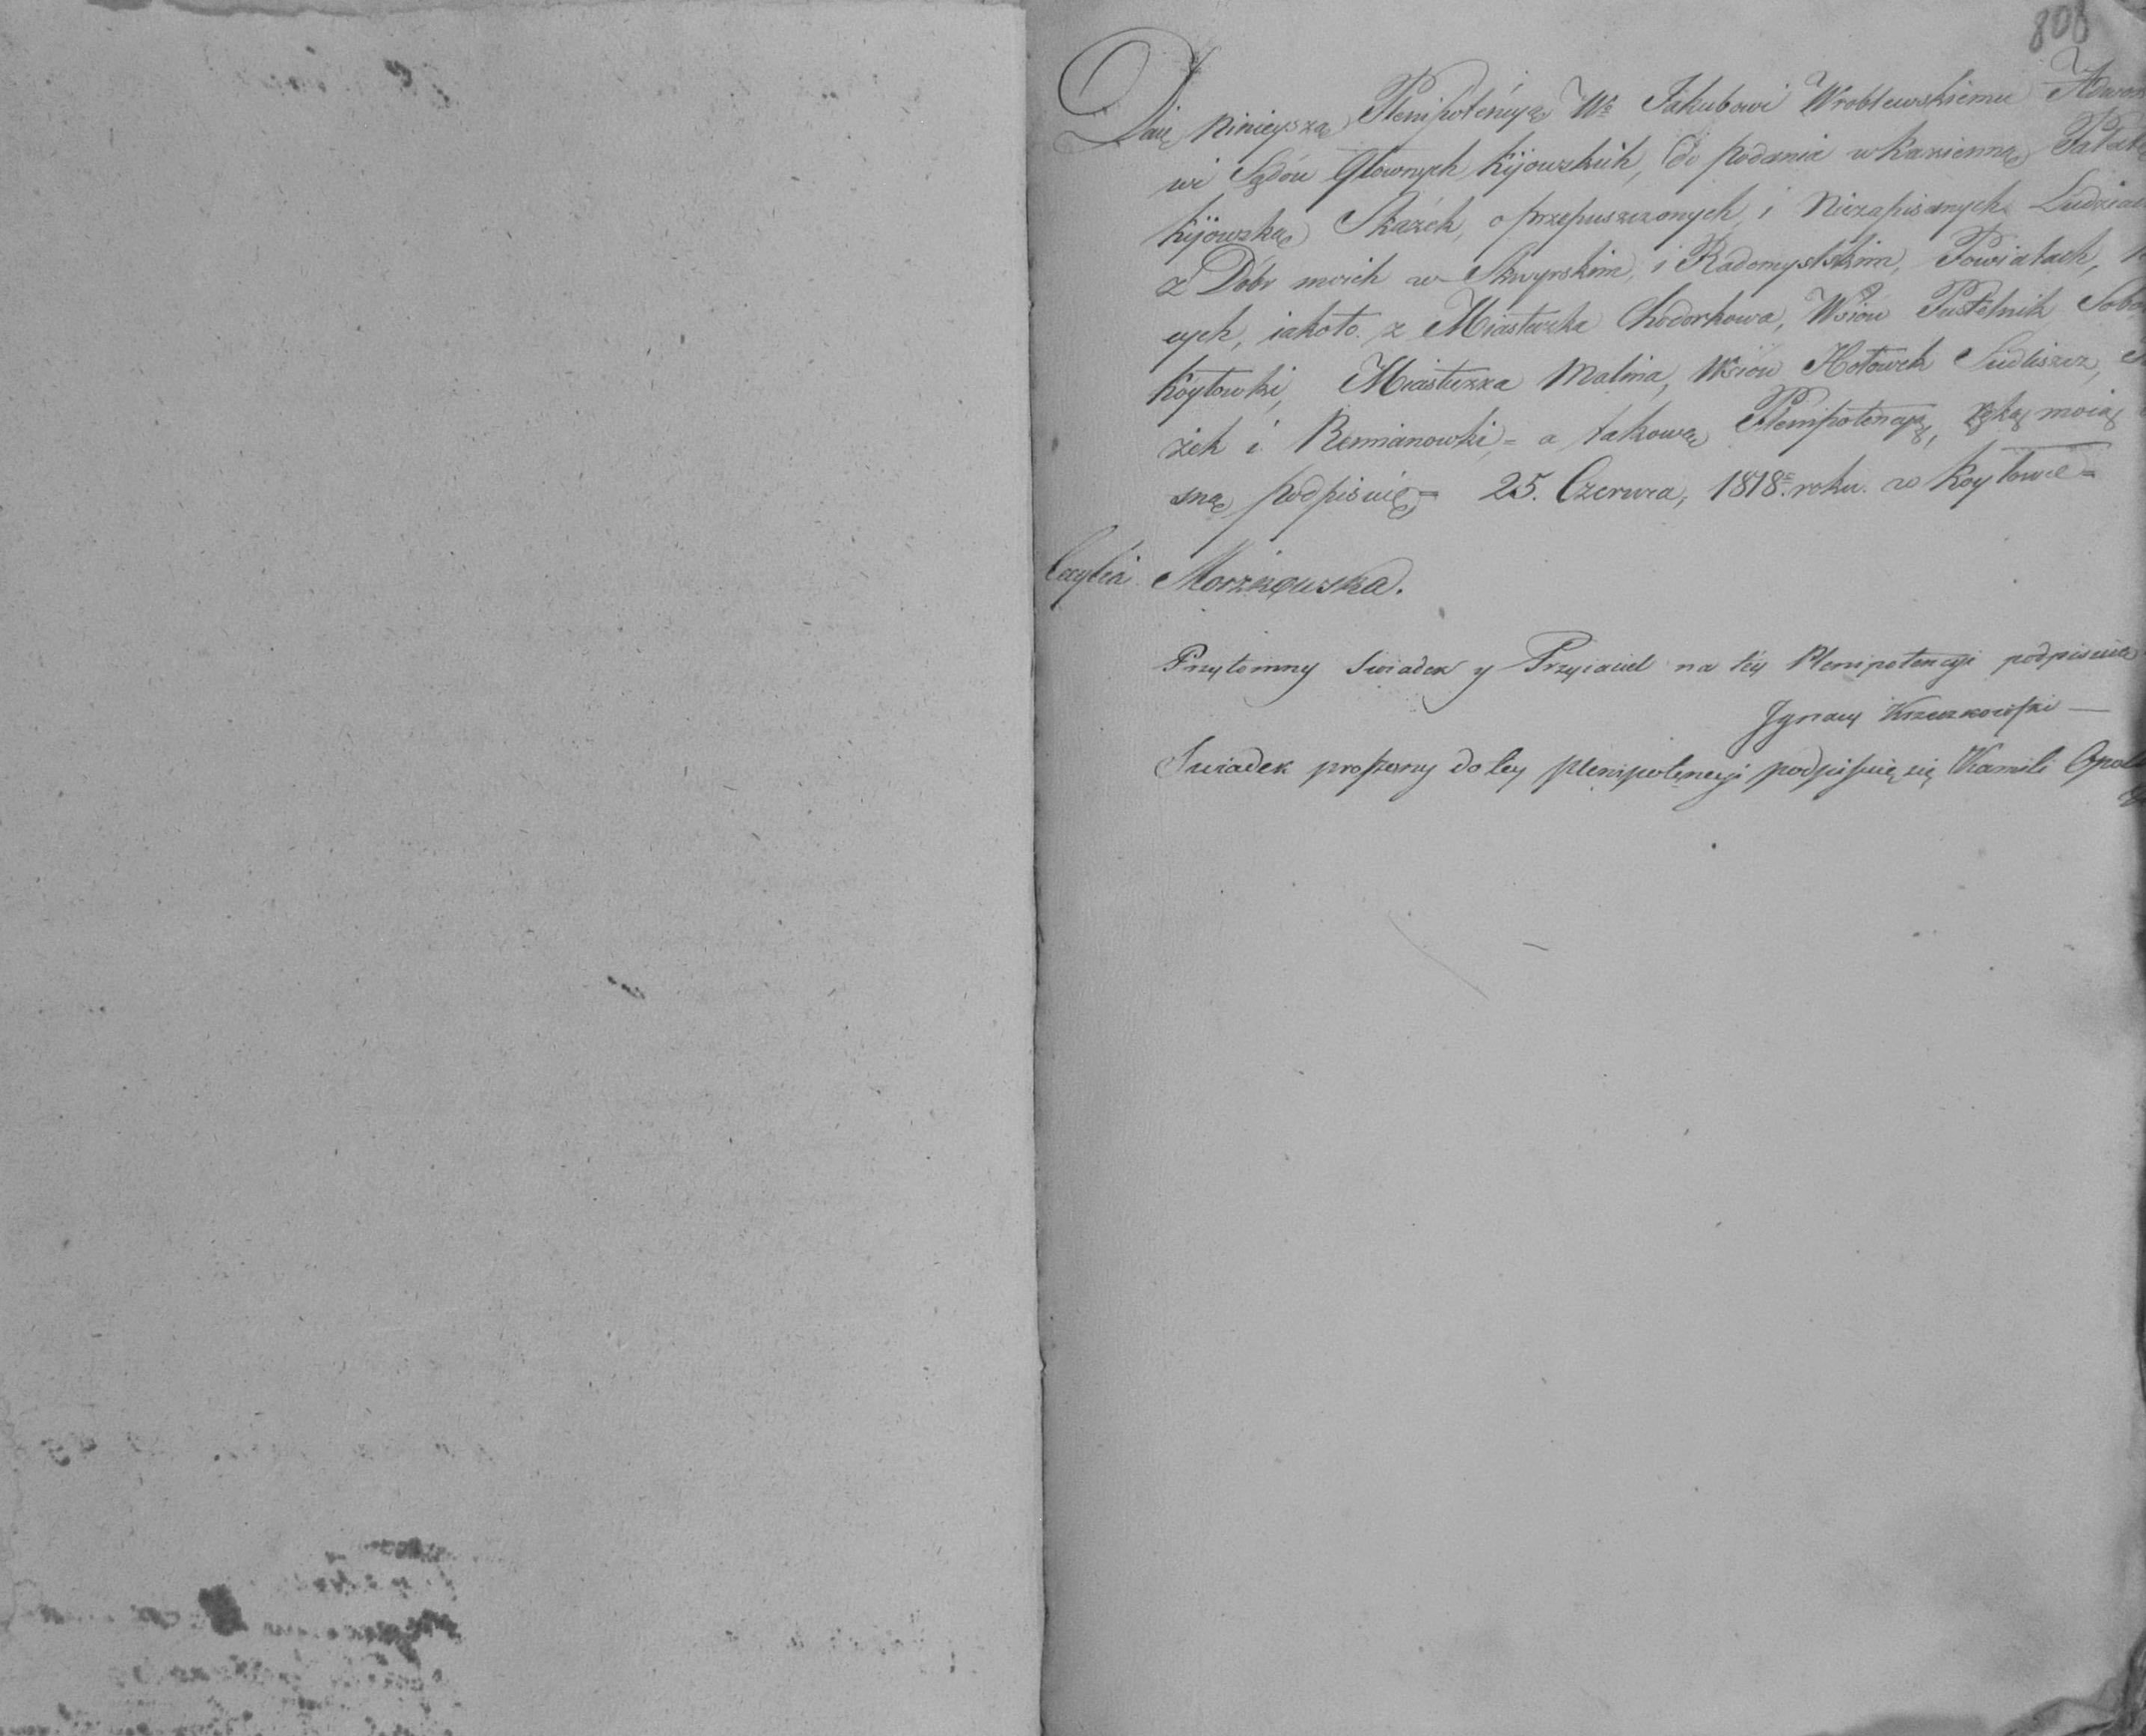 808
Daię ninieyszą Plenipotencyą Wu Jakubowi Wroblewskiemu Adwo
wi Sądów Głownych Kijowskich, do podania w Kazienną Pałatę
Kijowską Skazek, o przepuszczonych i niezapisanych Ludziach
z Dóbr moich w Skwyrskim, i Radomyslskim, Powiatach,
cych, iakoto z Miasteczka Chodorkowa, Wsiów Pustelnik
Koyłowki, Miasteczka Malina, Wsiów Hołowek
żek i Remianowki, = a takową Plenipotencyą, ręką moią
sną podpisuię = 25. Czerwca, 1818. roku. w Koyłowce =
Cecylia Morzkowska.
Przytomny Swiadek y Przyiaciel na tey Plenipotencyi podpisuie
Jgnacy Krzeczkowski —
Swiadek proszony do tey plenipotencyi podpisuię się Kamili